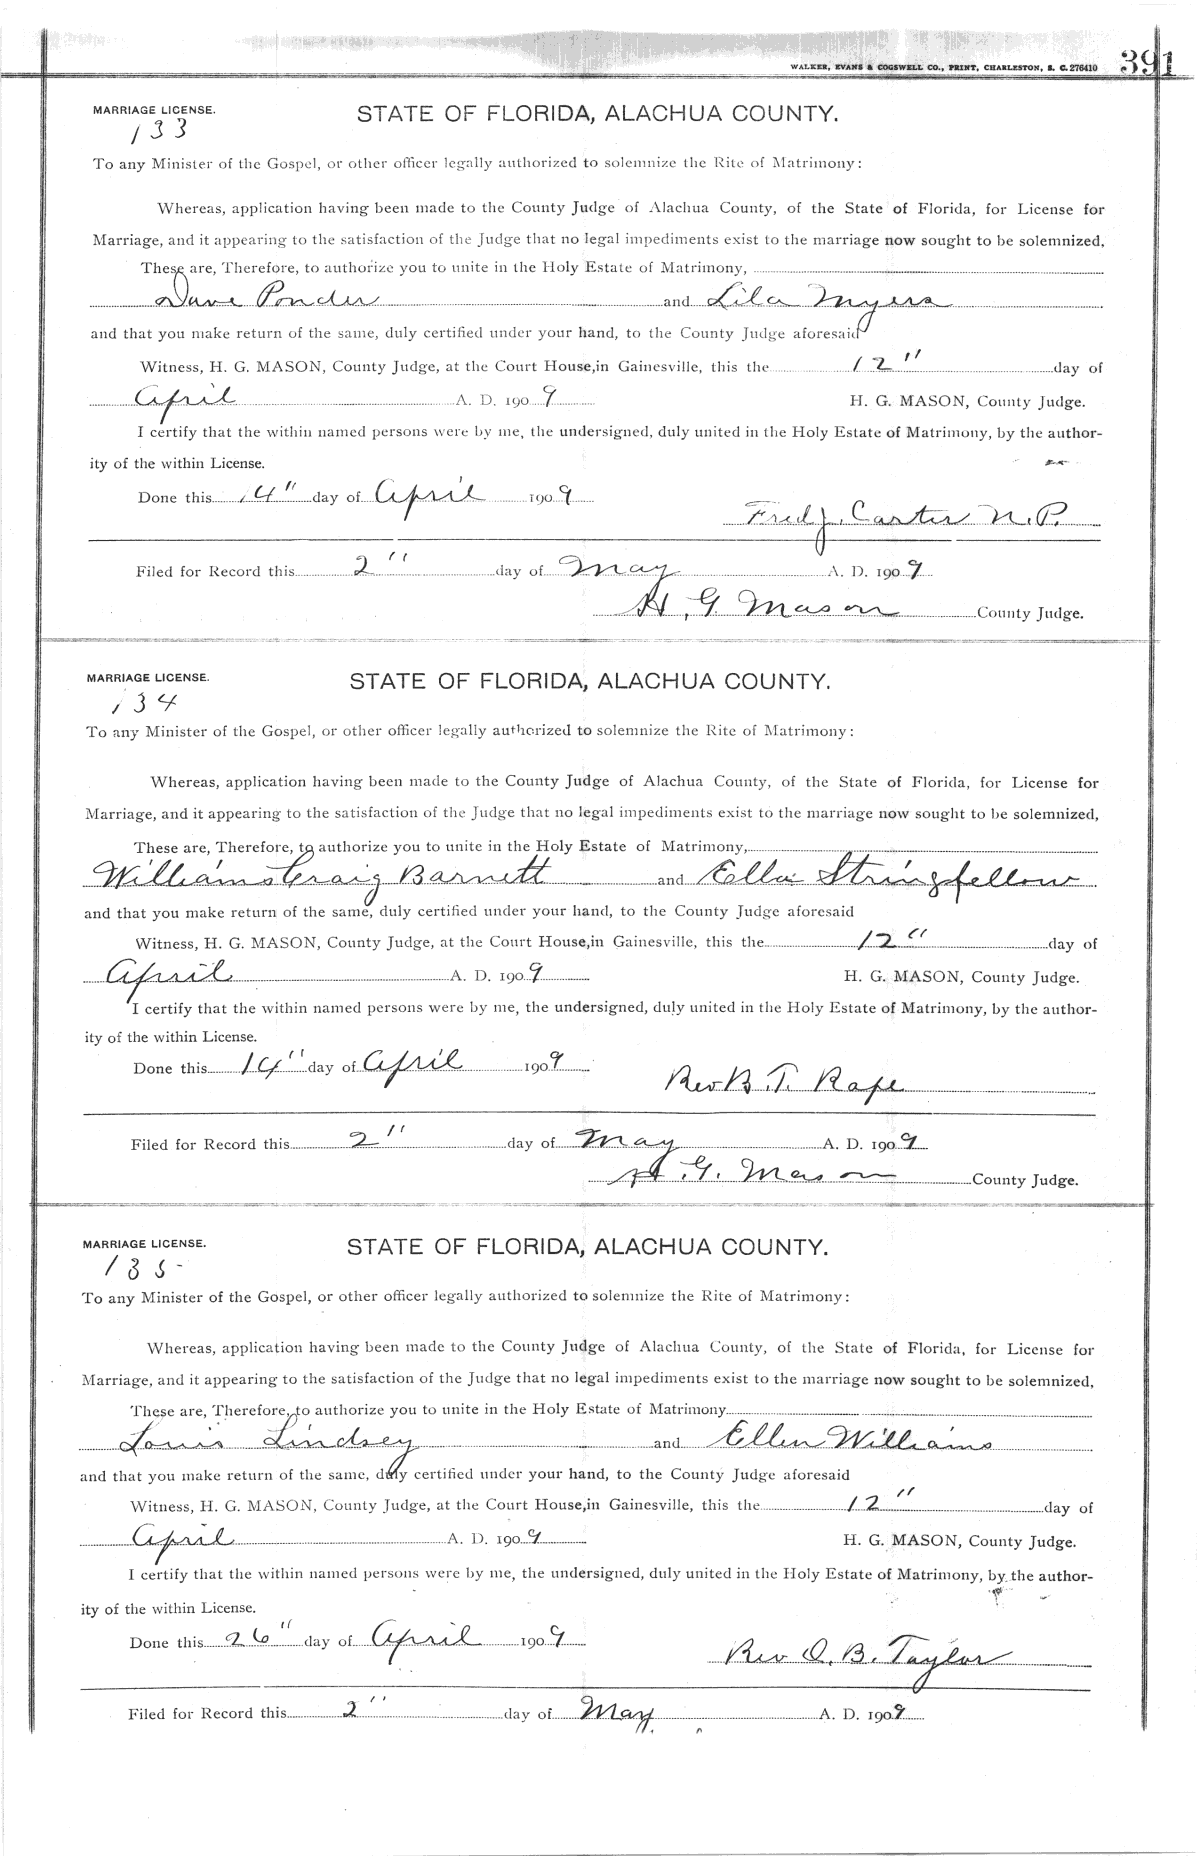 WALKER, EVANS & COGSWELL CO., PRINT, CHARLESTON, S. C. 276410 391
MARRIAGE LICENSE. STATE OF FLORIDA, ALACHUA COUNTY.
133
To any Minister of the Gospel, or other officer legally authorized to solemnize the Rite of Matrimony:
Whereas, application having been made to the County Judge of Alachua County, of the State of Florida, for License for
Marriage, and it appearing to the satisfaction of the Judge that no legal impediments exist to the marriage now sought to be solemnized,
These are, Therefore, to authorize you to unite in the Holy Estate of Matrimony,
Dave Ponder and Lila Myers
and that you make return of the same, duly certified under your hand, to the County Judge aforesaid
Witness, H. G. MASON, County Judge, at the Court House, in Gainesville, this the 12" day of
April A. D. 1909 H. G. MASON, County Judge.
I certify that the within named persons were by me, the undersigned, duly united in the Holy Estate of Matrimony, by the author-
ity of the within License.
Done this 14" day of April 1909
Fred J. Carter N.P.
Filed for Record this 2" day of May A. D. 1909
H. G. Mason County Judge.
MARRIAGE LICENSE. STATE OF FLORIDA, ALACHUA COUNTY.
134
To any Minister of the Gospel, or other officer legally authorized to solemnize the Rite of Matrimony:
Whereas, application having been made to the County Judge of Alachua County, of the State of Florida, for License for
Marriage, and it appearing to the satisfaction of the Judge that no legal impediments exist to the marriage now sought to be solemnized,
These are, Therefore, to authorize you to unite in the Holy Estate of Matrimony,
Williams Craig Barnett and Ella Stringfellow
and that you make return of the same, duly certified under your hand, to the County Judge aforesaid
Witness, H. G. MASON, County Judge, at the Court House, in Gainesville, this the 12" day of
April A. D. 1909 H. G. MASON, County Judge.
I certify that the within named persons were by me, the undersigned, duly united in the Holy Estate of Matrimony, by the author-
ity of the within License.
Done this 14" day of April 1909
Rev B. T. Rape
Filed for Record this 2" day of May A. D. 1909
H. G. Mason County Judge.
MARRIAGE LICENSE. STATE OF FLORIDA, ALACHUA COUNTY.
135
To any Minister of the Gospel, or other officer legally authorized to solemnize the Rite of Matrimony:
Whereas, application having been made to the County Judge of Alachua County, of the State of Florida, for License for
Marriage, and it appearing to the satisfaction of the Judge that no legal impediments exist to the marriage now sought to be solemnized,
These are, Therefore, to authorize you to unite in the Holy Estate of Matrimony
Louis Lindsey and Ellen Williams
and that you make return of the same, duly certified under your hand, to the County Judge aforesaid
Witness, H. G. MASON, County Judge, at the Court House, in Gainesville, this the 12" day of
April A. D. 1909 H. G. MASON, County Judge.
I certify that the within named persons were by me, the undersigned, duly united in the Holy Estate of Matrimony, by the author-
ity of the within License.
Done this 26" day of April 1909
Rev O. B. Taylor
Filed for Record this 2" day of May A. D. 1909